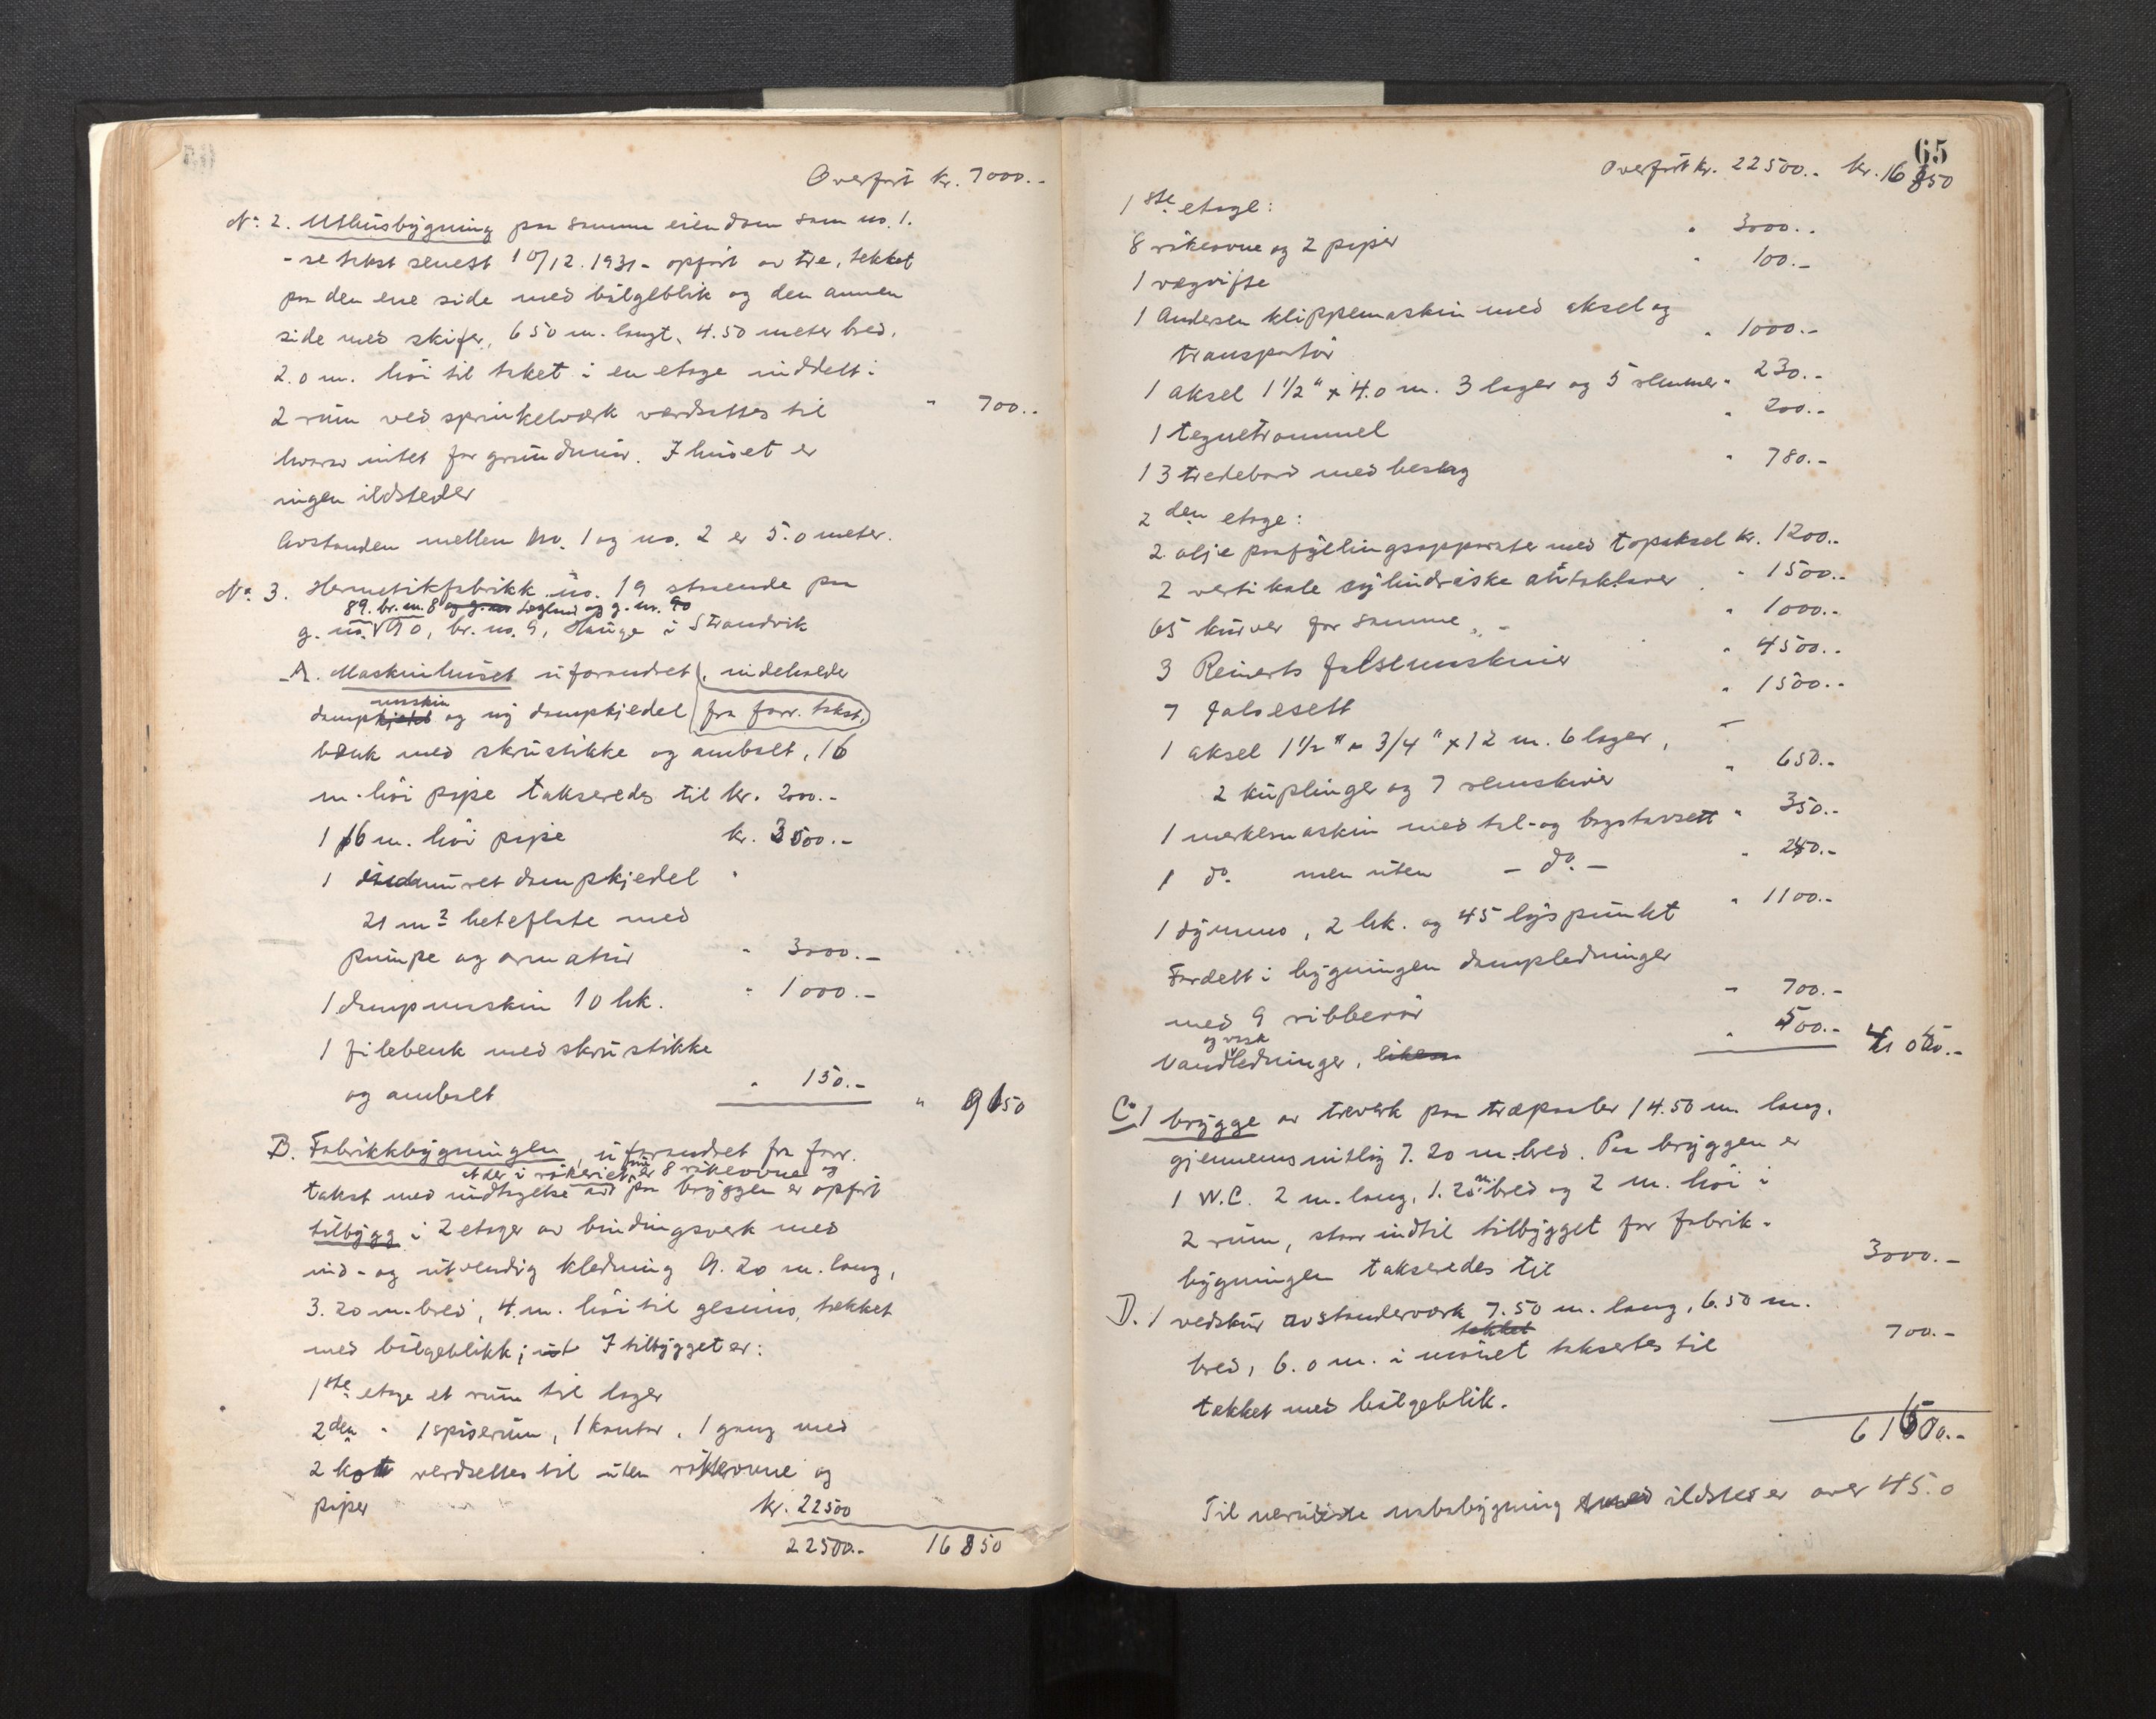 Overført kr. 7000.-
No. 2. Uthusbygning paa samme eiendom som no. 1.
- se takst senest 10/12.1931 - opført av tre, tekket
paa den ene side med bølgeblik og den annen
side med skifer, 650 m. langt, 4.50 meter bred,
2.0 m. høi til taket i en etage inddelt i
2 rum ved sprinkelverk værdsettes til " 700.-
hvorav intet for grundmur. I huset er
ingen ildsteder
Avstanden mellem no. 1 og no. 2 er 5.0 meter.
No. 3. Hermetikfabrikk no. 19 staaende paa
89. br. n. 8 og g. n. 90
g. no. 90, br. no. 9, Hauge i Strandvik
A. Maskinhuset uforandret, indeholder
maskin
dampkjedel og ny dampkjedel (fra forr. takst,)
benk med skrustikke og ambolt, 16
m. høi pipe takseredes til kr. 2000.-
1 16 m. høi pipe kr. 3500.-
1 indmuret dampkjedel "
21 m² heteflate med
pumpe og armatur " 3000.-
1 dampmaskin 10 hk. " 1000.-
1 filebenk med skrustikke
og ambolt " 150.- " 9150
B. Fabrikkbygningen, uforandret fra forr.
at der i røkeriet nu er 8 røkeovne og
takst med undtagelse av paa bryggen er opført
tilbygg i 2 etager av bindingsverk med
ind- og utvendig kledning 9.20 m. lang,
3.20 m. bred, 4. m. høi til gesims, tekket
med bølgeblikk; I tilbygget er:
1ste etage et rum til lager
2den " 1 spiserum, 1 kontor, 1 gang med
2 kott verdsettes til uten røkeovne og
piper kr. 22500
22500.- 16850
65
Overført kr. 22500.- kr. 16850
1ste etage:
8 røkeovne og 2 piper " 3000.-
1 vegvifte " 100.-
1 Andersen klippemaskin med aksel og
transportør " 1000.-
1 aksel 1 1/2" x 4.0 m. 3 lager og 5 remmer " 230.-
1 tegnetrommel " 200.-
13 tredebord med beslag " 780.-
2den etage:
2 olje paafyllingsapparater med topaksel kr. 1200.-
2 vertikale cylindriske autoklaver " 1500.-
65 kurver for samme " 1000.-
3 Reinerts falsemaskiner " 4500.-
7 falsesett " 1500.-
1 aksel 1 1/2" x 3/4" x 12 m. 6 lager,
2 kuplinger og 7 remskiver " 650.-
1 merkemaskin med tal- og bogstavsett " 350.-
1 do. men uten - do. - " 250.-
1 dynamo, 2 hk. og 45 lyspunkt " 1100.-
Fordelt i bygningen dampledninger
med 9 ribberør " 700.-
og vask
Vandledninger, " 500.- 41 050.-
C. 1 brygge av treverk paa træpæler 14.50 m. lang,
gjennemsnitlig 7.20 m. bred. Paa bryggen er
1 W.C. 2 m. lang, 1.20 m. bred og 2 m. høi i
2 rum, staar indtil tilbygget for fabrik-
bygningen takseredes til 3000.-
D. 1 vedskur av standerverk 7.50 m. lang, 6.50 m.
tekket
bred, 6.0 m. i mønet takseres til 700.-
tekket med bølgeblik.
61600.-
Til nermeste nabobygning med ildsted er over 45.0